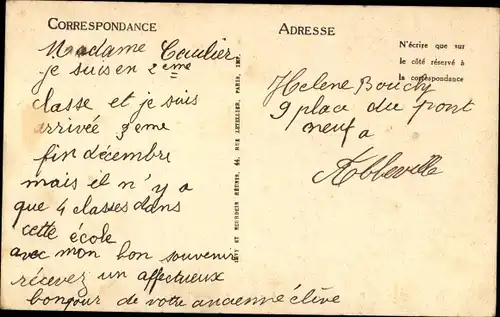 CORRESPONDANCE
Madame Caulier
je suis en 2eme
classe et je suis
arrivée 3eme
fin décembre
mais il n'y a
que 4 classes dans
cette école
avec mon bon souvenir
recevez un affectueux
bonjour de votre ancienne élève
LEVY ET NEURDEIN RÉUNIS, 44, RUE LETELLIER, PARIS, IMP.
ADRESSE
N'écrire que sur
le côté réservé à
la correspondance
Helene Bouchy
9 place du pont
neuf a
Abbeville